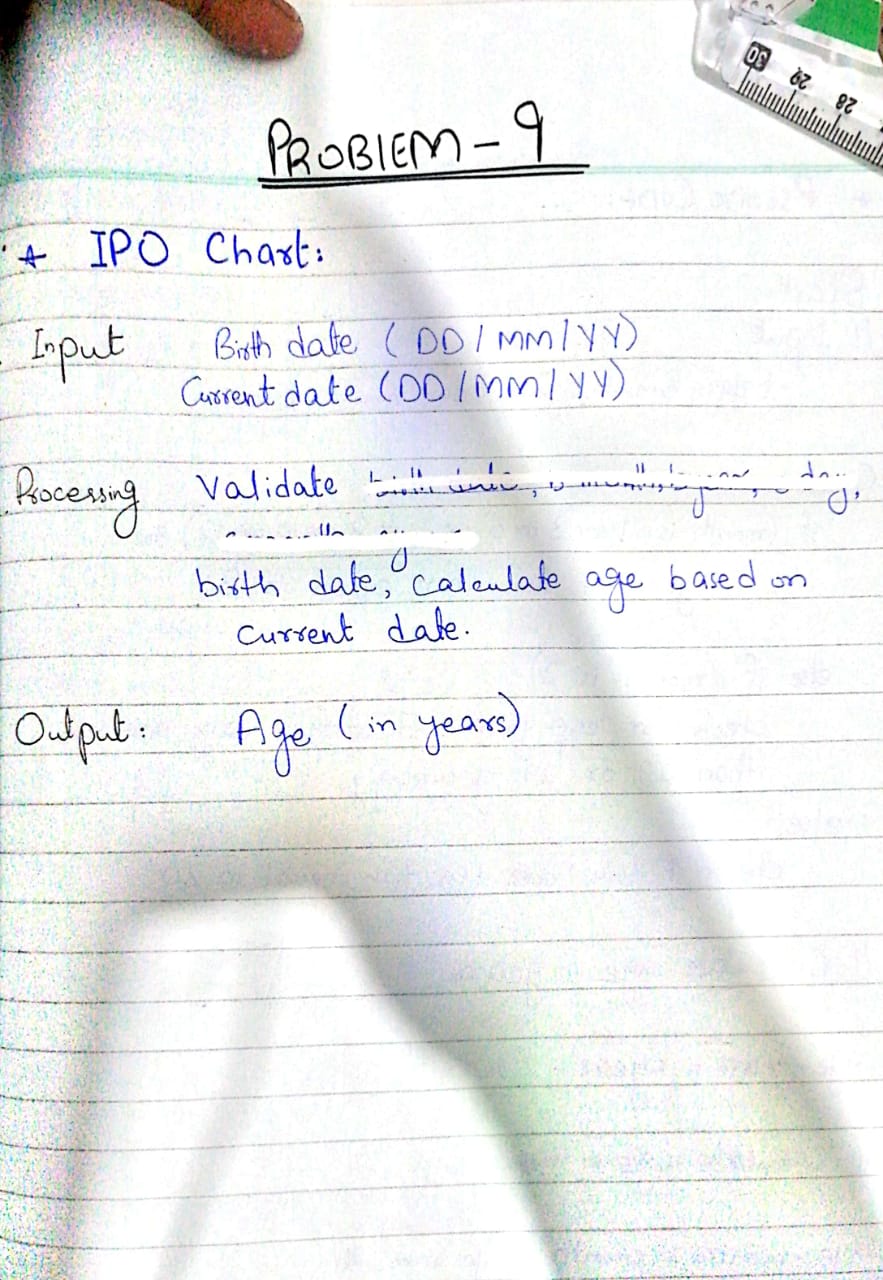 30 29 28
PROBLEM - 9
* IPO Chart:
Input Birth date ( DD / MM / YY )
Current date ( DD / MM / YY )
Processing Validate
birth date, calculate age based on
current date.
Output: Age ( in years )